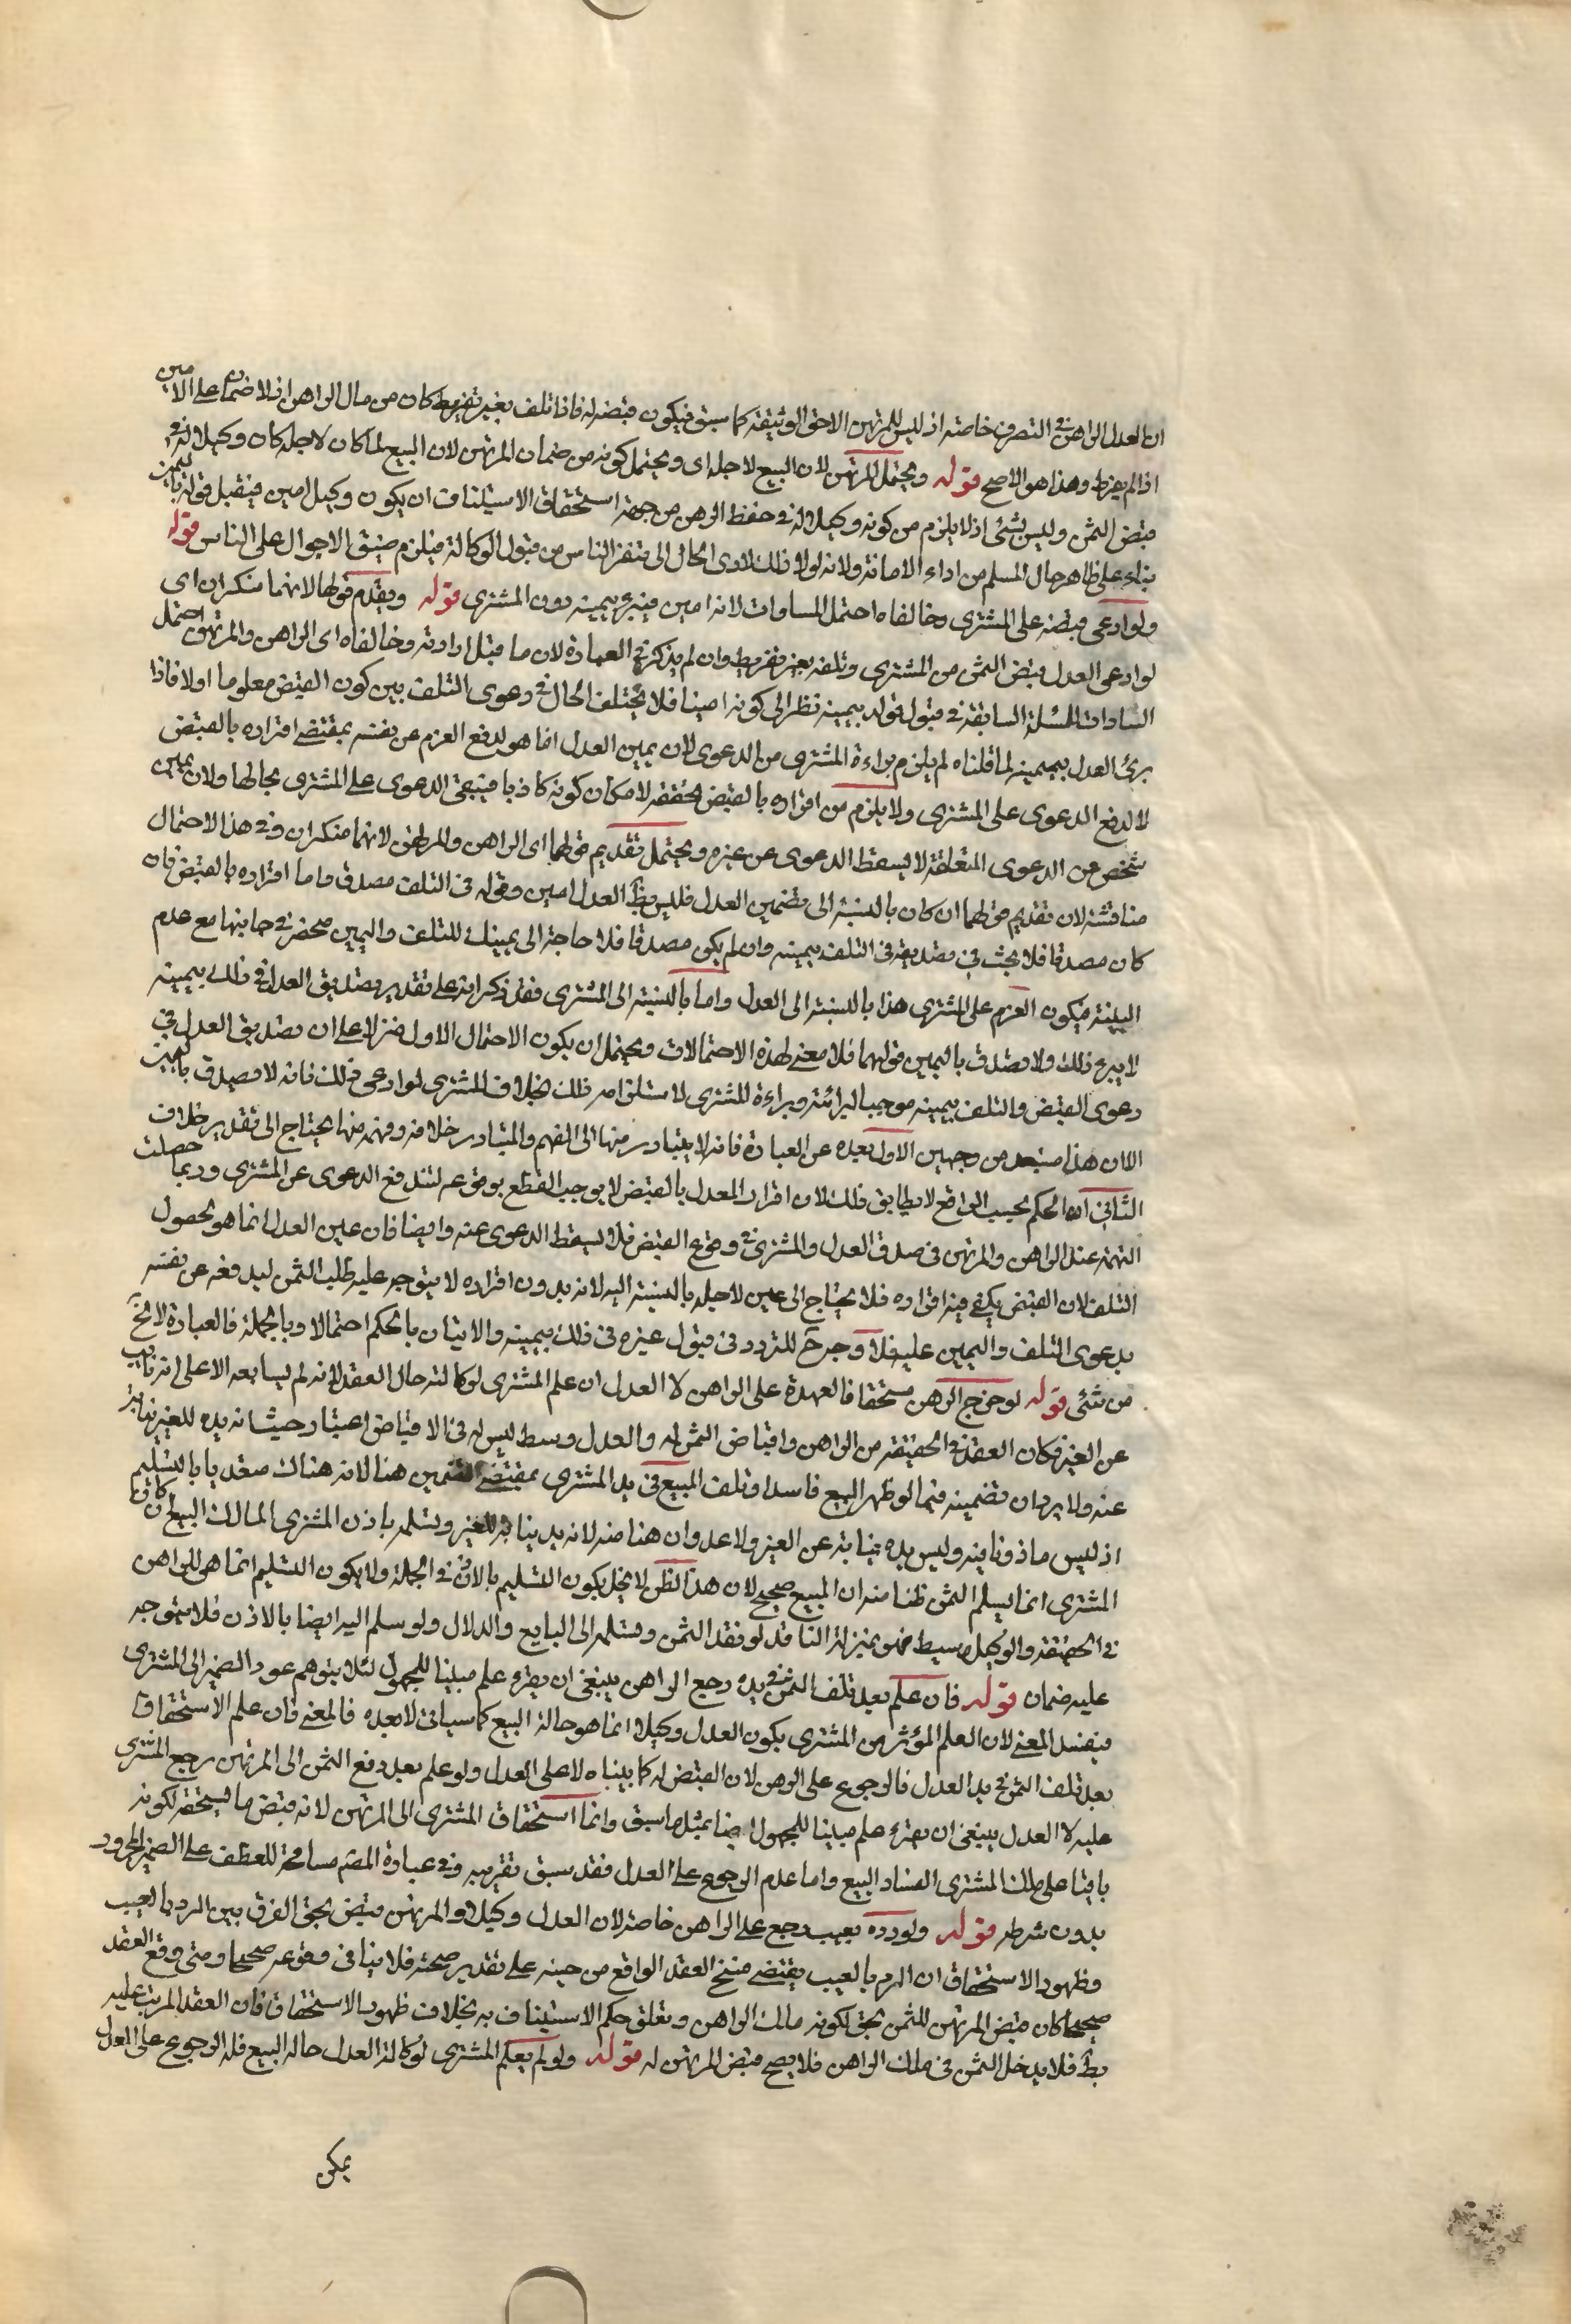 ان العدل الراهن في التصرف خاصة اذ ليس للمرتهن الا حق الوثيقة كما سبق فيكون قبضه له فاذا تلف بغير تفريط كان من مال الراهن اذ لا ضمان على الامين
اذا لم يفرط وهذا هو الاصح قوله ويحتمل المرتهن لان البيع لاجله اى ويحتمل كونه من ضمان المرتهن لان البيع لما كان لاجله كان وكيلا له في
قبض الثمن وليس بشئ اذ لا يلزم من كونه وكيلا له في حفظ الرهن من جهة استحقاق الاستيثاق ان يكون وكيل امين فيقبل قوله باليمين
بناء على ظاهر حال المسلم من اداء الامانة ولانه لولا ذلك لادى الحال الى تنفر الناس من قبول الوكالة فيلزم ضيق الاحوال على الناس قوله
ولو ادعى قبضه على المشترى وخالفاه احتمل المساوات لانه امين فيبرء بيمينه دون المشترى قوله ويقدم قولهما لانهما منكران اى
لو ادعى العدل قبض الثمن من المشترى وتلفه بغير تفريط وان لم يذكر في العبارة لان ما قبل ارادته وخالفاه اى الراهن والمرتهن احتمل
المساوات للمسئلة السابقة في قبول قوله بيمينه نظرا الى كونه امينا فلا يختلف الحال في دعوى التلف بين كون القبض معلوما اولا فاذا
برئ العدل بيمينه لما قلناه لم يلزم براءة المشترى من الدعوى لان يمين العدل انما هو لدفع الغرم عن نفسه بمقتضى اقراره بالقبض
لا لدفع الدعوى على المشترى ولا يلزم من اقراره بالقبض تحققه لامكان كونه كاذبا فيبقى الدعوى على المشترى بحالها ولان يمين
شخص عن الدعوى المتعلقة لا يسقط الدعوى عن غيره ويحتمل تقديم قولهما اى الراهن والمرتهن لانهما منكران وفي هذا الاحتمال
مناقشة لان تقديم قولهما ان كان بالنسبة الى تضمين العدل فليس بظ العدل امين وقوله في التلف مصدق واما اقراره بالقبض فان
كان مصدقا فلا بحث في تصديقه في التلف بيمينه وان لم يكن مصدقا فلا حاجة الى يمينك للتلف واليمين منحصر في جانبها مع عدم
البينة فيكون الغرم على المشترى هذا بالنسبة الى العدل واما بالنسبة الى المشترى فقد ذكر انه على تقدير تصديق العدل في ذلك بيمينه
لا يبرء ذلك ولا تصدق باليمين قولهما فلا معنى لهذه الاحتمالات ويحتمل ان يكون الاحتمال الاول منزلا على ان تصديق العدل في
دعوى القبض والتلف بيمينه موجبا لبرائته وبراءة للمشترى لاستلزامه ذلك بخلاف المشترى لو ادعى ذلك فانه لا يصدق باليمين
الا ان هذا مستبعد من وجهين الاول بعده عن العبارة فانه لا يتبادر منها الى الفهم والمتبادر خلافه وفهمه منها يحتاج الى تقدير خلاف
الثاني ان الحكم بحسب الواقع لا يطابق ذلك لان اقرار العدل بالقبض لا يوجب القطع بوقوعه لتندفع الدعوى عن المشترى وربما حصلت
التهمة عند الراهن والمرتهن في صدق العدل والمشترى في وقوع القبض فلا يسقط الدعوى عنه وايضا فان يمين العدل انما هو لحصول
التلف لان القبض يكفي فيه اقراره فلا يحتاج الى يمين لاجله بالنسبة اليه لانه بدون اقراره لا يتوجه عليه طلب الثمن ليدفعه عن نفسه
بدعوى التلف واليمين عليه فلا وجه ح للتردد في قبول غيره في ذلك بيمينه والاتيان بالحكم احتمالا وبالجملة فالعبارة لا تخ
من شئ قوله لو خرج الرهن مستحقا فالعهدة على الراهن لا العدل ان علم المشترى لوكالته حال العقد لانه لم يبايعه الا على انه نايب
عن الغير فكان العقد في الحقيقة من الراهن واقباض الثمن له والعدل وسط ليس له في الاقباض اعتبار حيث انه يده للغير نيابة
عنه ولا يرد ان تضمينه فيما لو ظهر البيع فاسدا وتلف المبيع في يد المشترى بمقتضى التضمين هنا لانه هناك متعديا بالتسليم
اذ ليس ماذونا فيه وليس يده نيابة عن الغير ولا عدوان هنا منه لانه يد نيابة للغير وتسلمه باذن المشترى المالك البيع ان كان
المشترى انما يسلم الثمن ظنا منه ان المبيع صحيح لان هذا الظن لا يخل بكون التسليم بالاذن في الجملة ولا يكون التسليم انما هي للراهن
في الحقيقة والوكيل وسيط فهو بمنزلة الناقد لو نقد الثمن وسلمه الى البايع والدلال ولو سلم اليه ايضا بالاذن فلا يتوجه
عليه ضمان قوله فان علم بعد تلف الثمن في يده رجع الراهن ينبغى ان يقرء علم مبنيا للمجهول لئلا يتوهم عود الضمير الى المشترى
فيفسد المعنى لان العلم المؤثر من المشترى بكون العدل وكيلا انما هو حالة البيع كما سياتى لا بعده فالمعنى فان علم الاستحقاق
بعد تلف الثمن في يد العدل فالرجوع على الرهن لان القبض له كما بيناه لا على العدل ولو علم بعد دفع الثمن الى المرتهن رجع المشترى
عليه لا العدل ينبغى ان يقرء علم مبنيا للمجهول ايضا بمثل ما سبق وانما استحقاق المشترى الى المرتهن لانه قبض ما يستحقه لكونه
باقيا على ملك المشترى لفساد البيع واما عدم الرجوع على العدل فقد سبق تقريبه وفي عبارة المصنف مسامحة للعطف على الضمير المجرور
بدون شرطه قوله ولو رده بعيب رجع على الراهن خاصة لان العدل وكيل والمرتهن قبض بحق الفرق بين الرد بالعيب
وظهور الاستحقاق ان الرد بالعيب يقتضى فسخ العقد الواقع من حينه على تقدير صحته فلا ينافى وقوعه صحيحا ومتى وقع العقد
صحيحا كان قبض المرتهن للثمن بحق لكونه ملك الراهن وتعلق حكم الاستيثاق به بخلاف ظهور الاستحقاق فان العقد المرتب عليه
بط فلا يدخل الثمن في ملك الراهن فلا يصح قبض المرتهن له قوله ولو لم يعلم المشترى لوكالة العدل حالة البيع فله الرجوع على العدل
يمكن